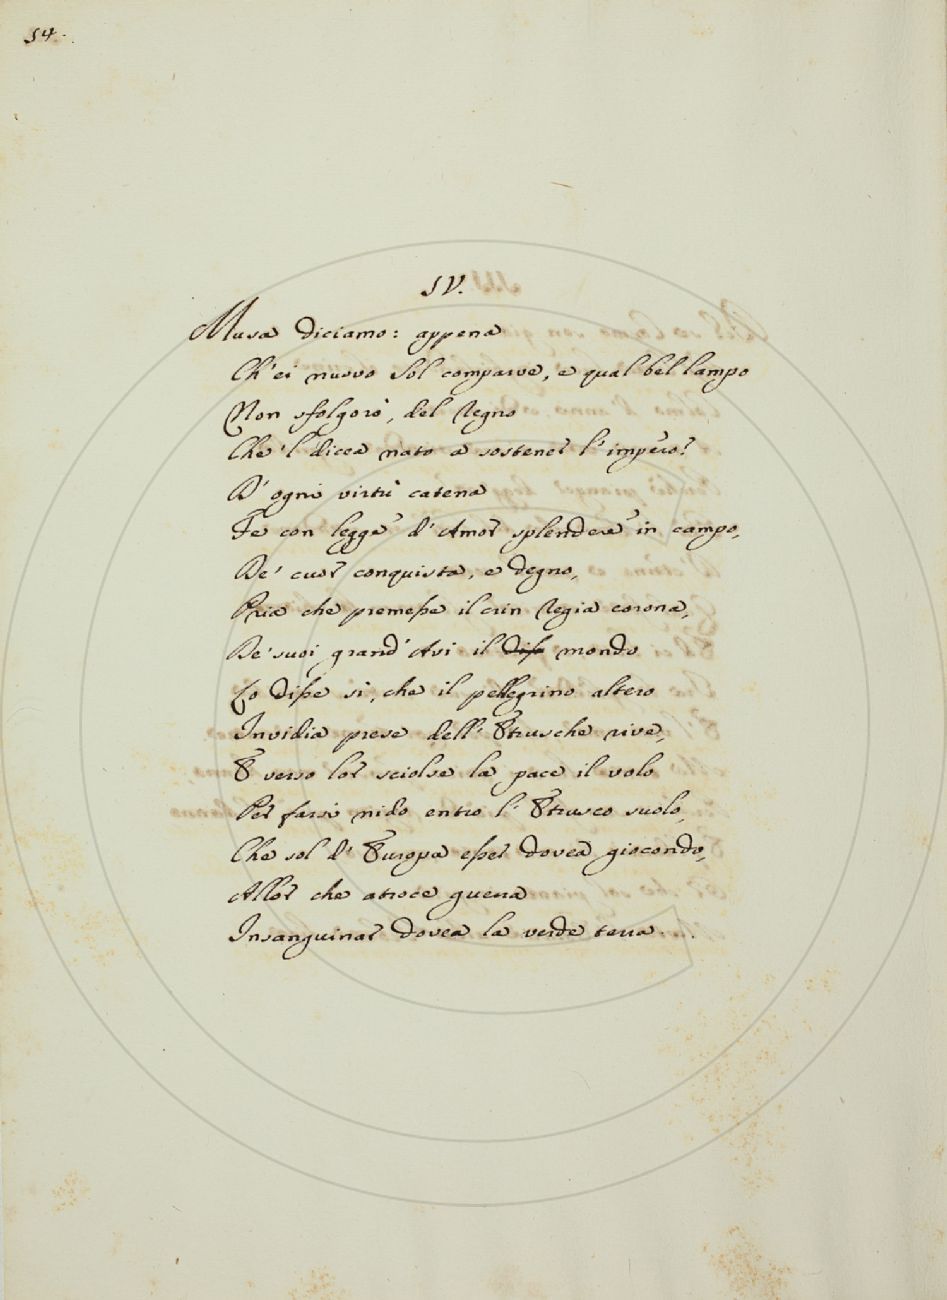 54.
IV.
Musa diciamo: appena
Ch'ei nuovo Sol comparve, e qual bel lampo
Non sfolgorò, del Regno
Che 'l dicea nato a sostener l'impero?
D'ogni virtù catena
Fe con legge d'Amor splendere in campo,
De' cuor conquista, e degno,
Pria che premesse il crin Regia corona,
De' suoi grand'Avi il diss mondo
Lo disse sì, che il pellegrino altero
Invidia prese dell'Etrusche rive,
E verso lor sciolse la pace il volo
Per farsi nido entro l'Etrusco suolo,
Che sol d'Europa esser dovea giocondo,
Allor che atroce guerra
Insanguinar dovea la verde terra....